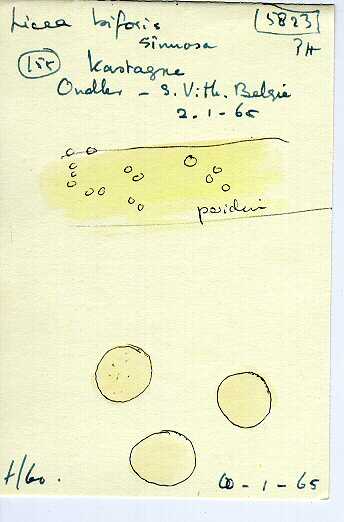 Licea biforis [5823]
sinuosa PH
155 Kastagne
Oudler - S. Vith. Belgie
2-1-65
peridium
H/60. -1-65